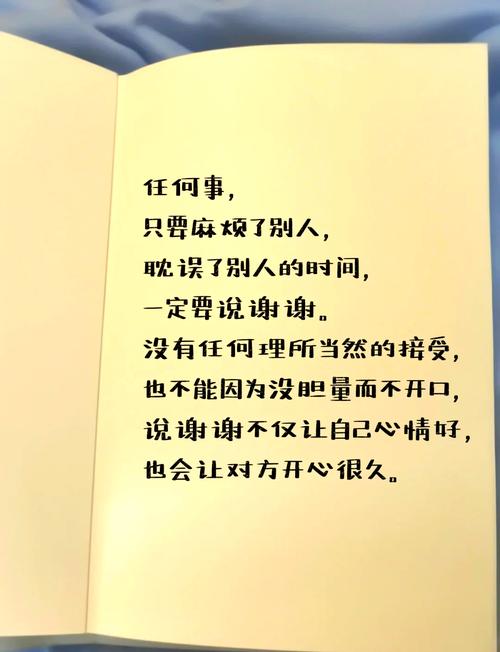 任何事，
只要麻烦了别人，
耽误了别人的时间，
一定要说谢谢。
没有任何理所当然的接受，
也不能因为没胆量而不开口，
说谢谢不仅让自己心情好，
也会让对方开心很久。